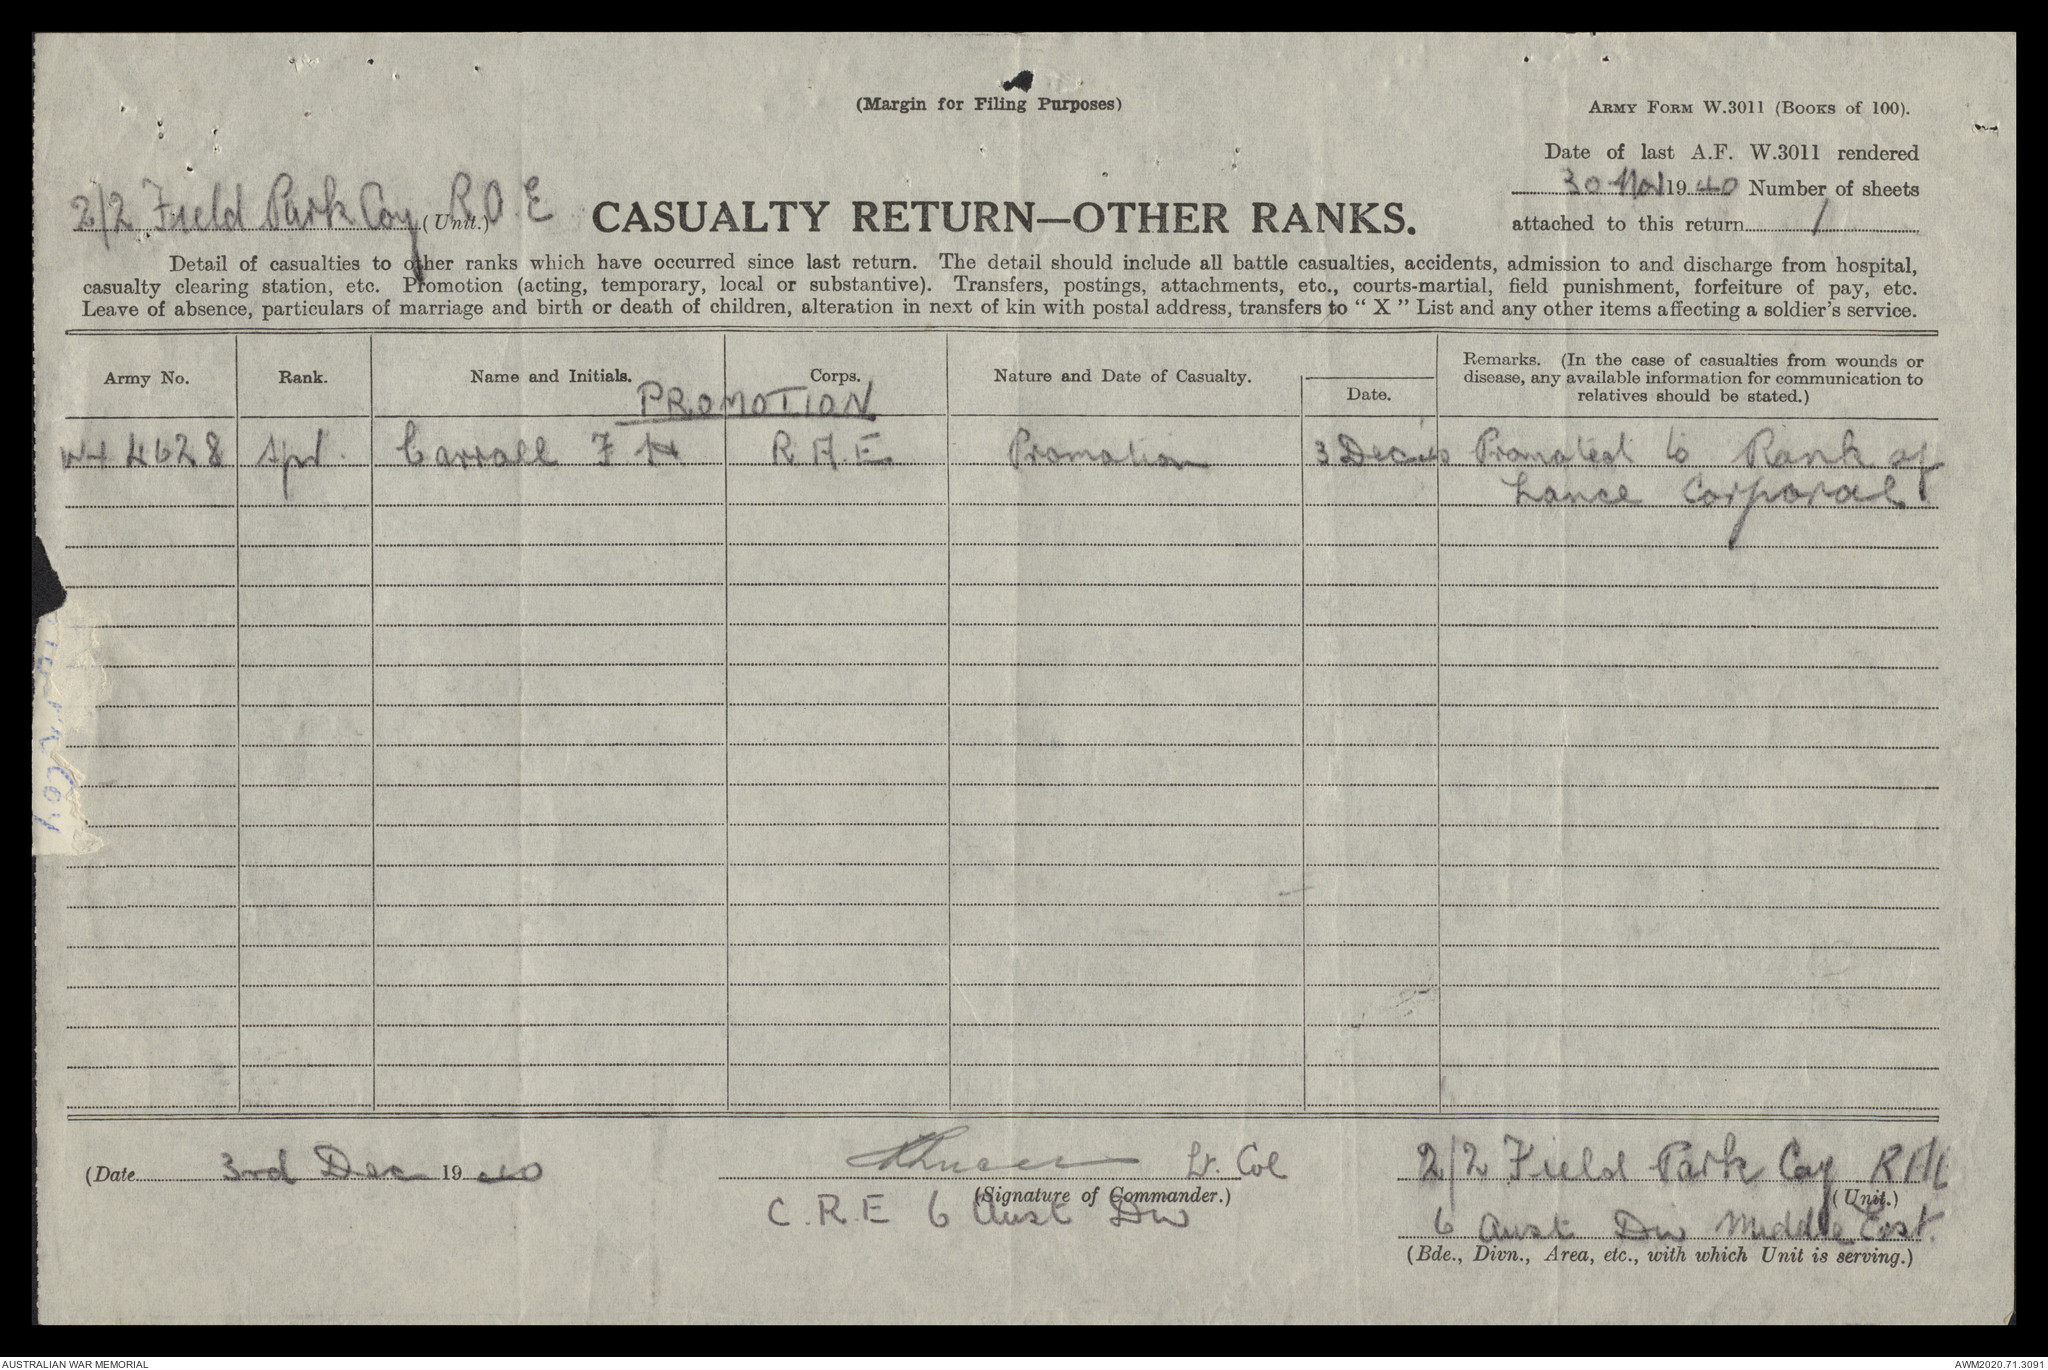 (Margin for Filing Purposes)
ARMY FORM W.3011 (BOOKS of 100).
Date of last A.F. W.3011 rendered
30 Nov 1940 Number of sheets
attached to this return 1
2/2 Field Park Coy (Unit.) R.A.E
CASUALTY RETURN—OTHER RANKS.
Detail of casualties to other ranks which have occurred since last return. The detail should include all battle casualties, accidents, admission to and discharge from hospital,
casualty clearing station, etc. Promotion (acting, temporary, local or substantive). Transfers, postings, attachments, etc., courts-martial, field punishment, forfeiture of pay, etc.
Leave of absence, particulars of marriage and birth or death of children, alteration in next of kin with postal address, transfers to " X " List and any other items affecting a soldier's service.
Army No. Rank. Name and Initials. Corps. Nature and Date of Casualty. Date. Remarks. (In the case of casualties from wounds or
disease, any available information for communication to
relatives should be stated.)
PROMOTION
WX 4628 Spr. Carroll F H R.A.E Promotion 3 Dec 40 Promoted to Rank of
Lance Corporal
(Date 3rd Dec 1940 Lt. Col 2/2 Field Park Coy RAE
(Signature of Commander.) (Unit.)
C.R.E 6 Aust Div 6 Aust Div Middle East.
(Bde., Divn., Area, etc., with which Unit is serving.)
AUSTRALIAN WAR MEMORIAL AWM2020.71.3091